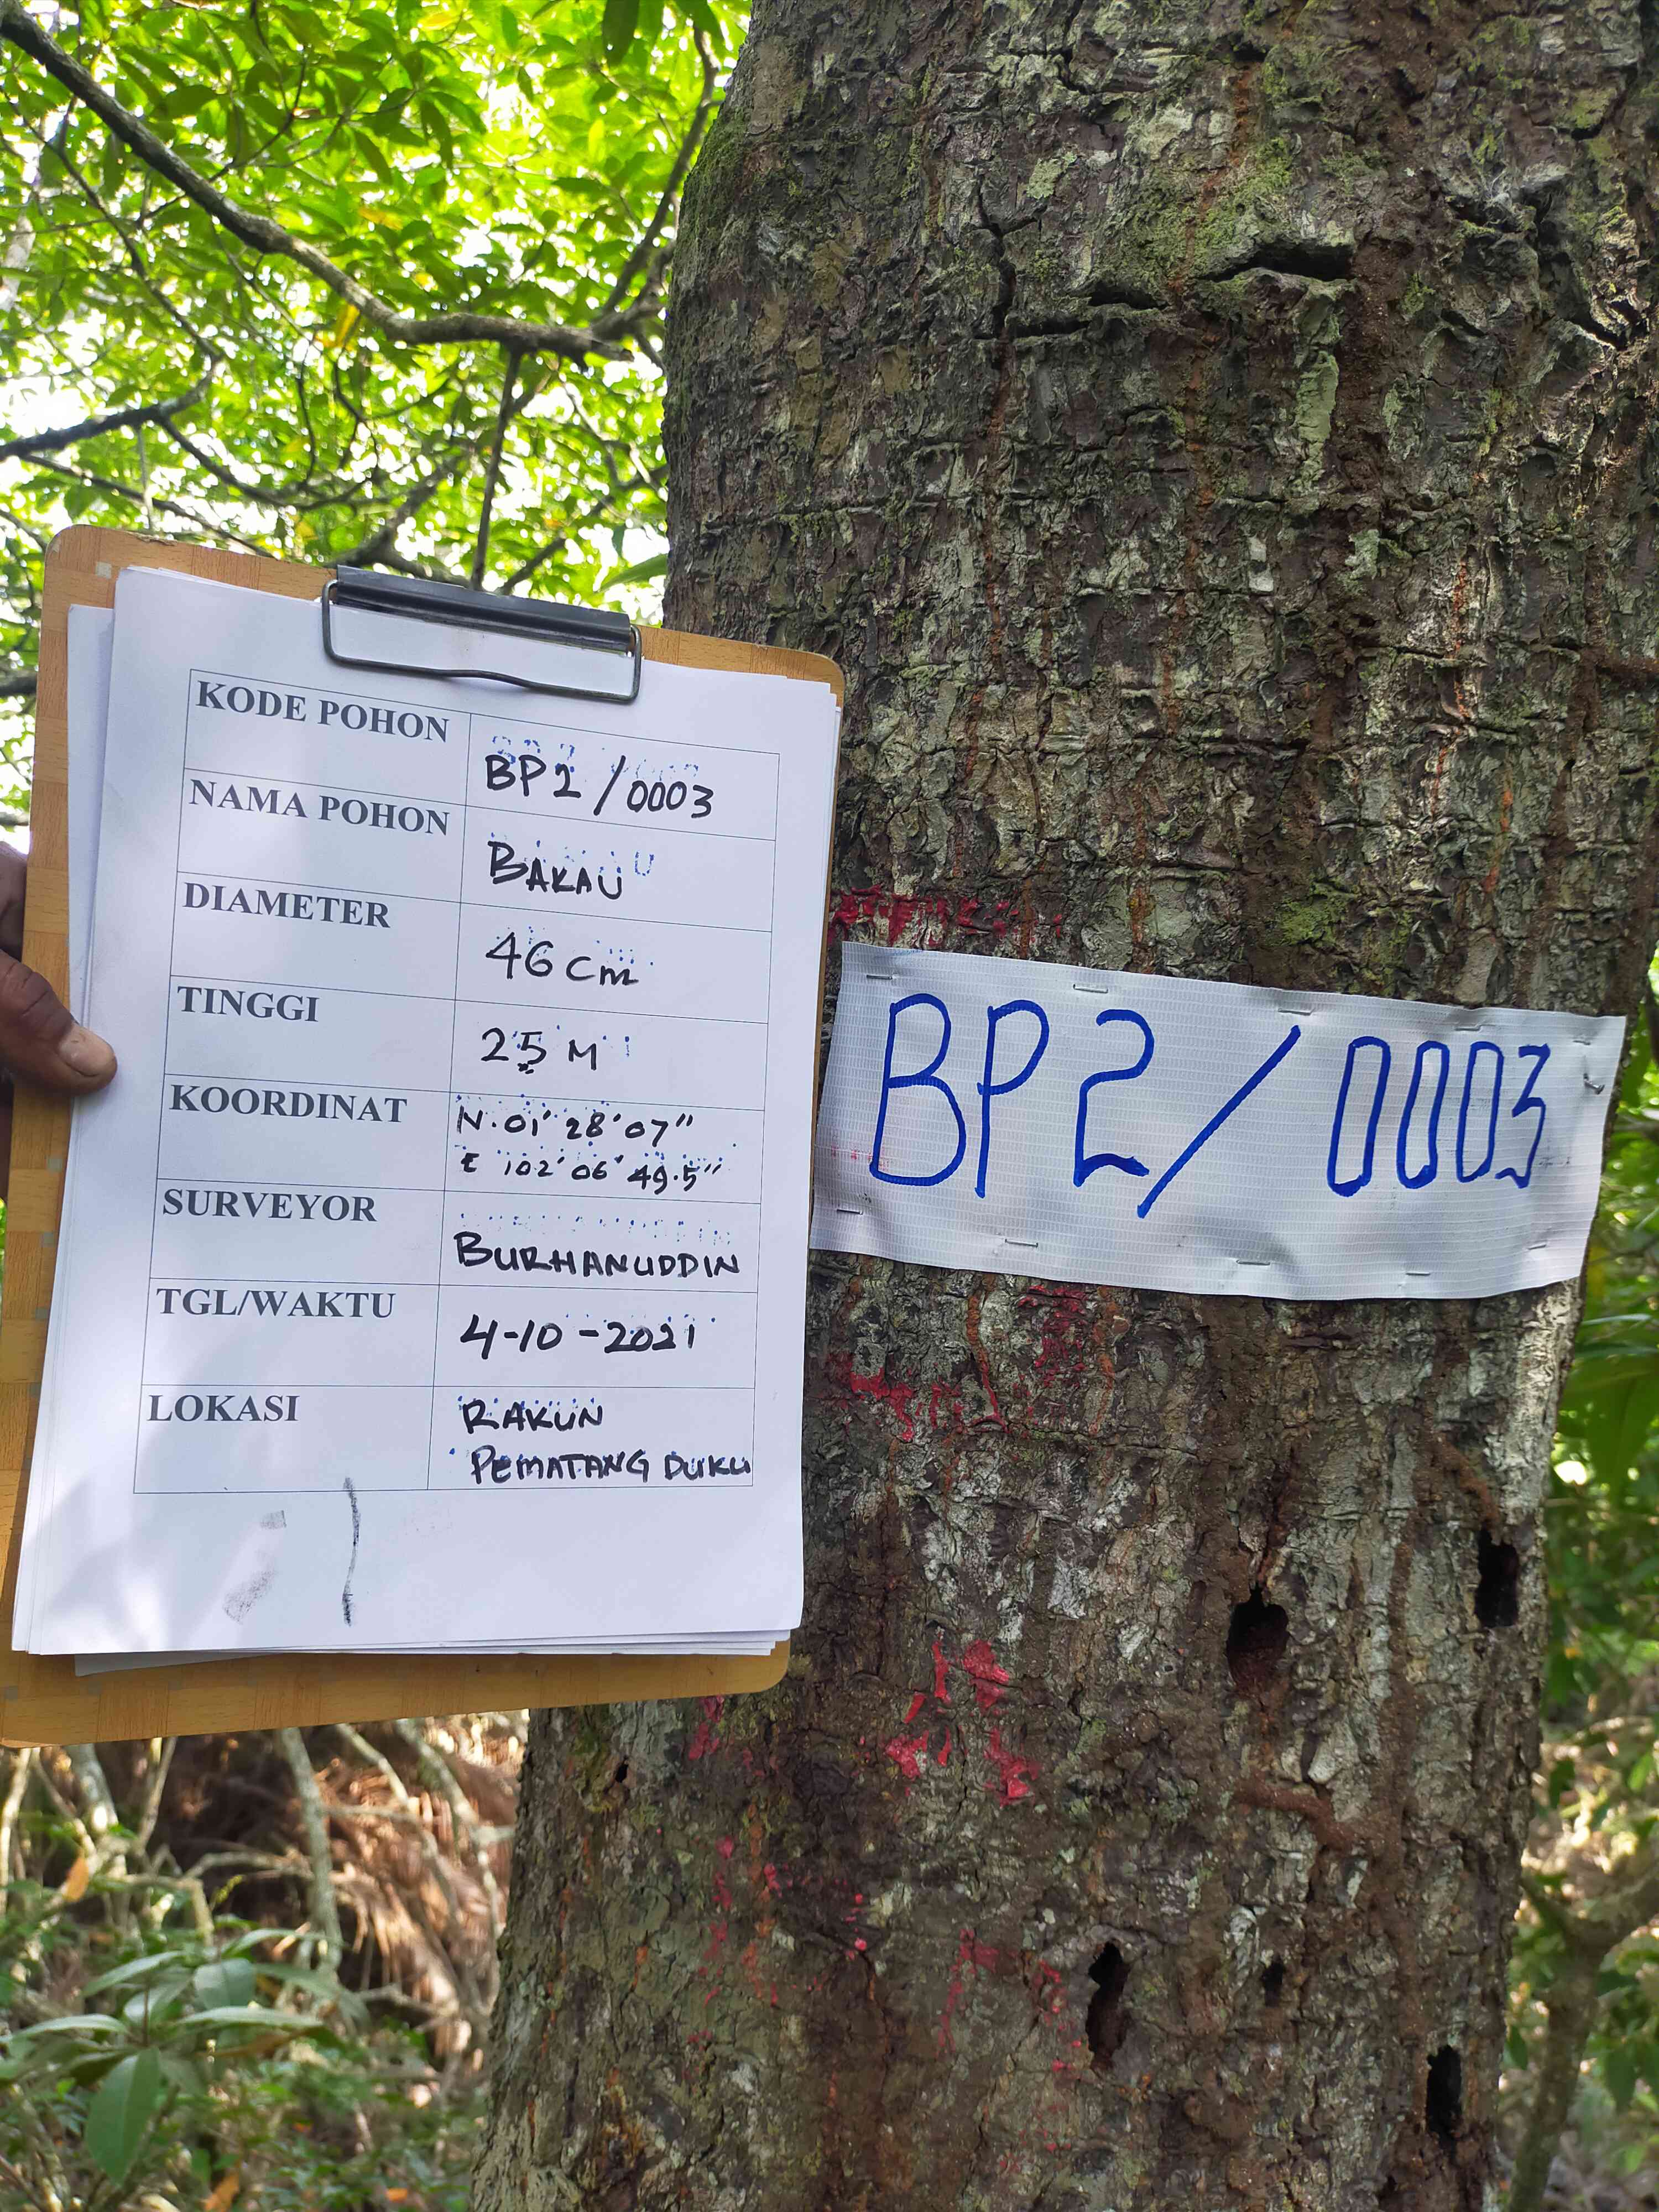 KODE POHON BP2/0003
NAMA POHON BAKAU
DIAMETER 46 cm
TINGGI 25 M
KOORDINAT N. 01' 28' 07"
E 102' 06' 49.5"
SURVEYOR BURHANUDDIN
TGL/WAKTU 4-10-2021
LOKASI RAKUN
PEMATANG DUKU
BP2/0003